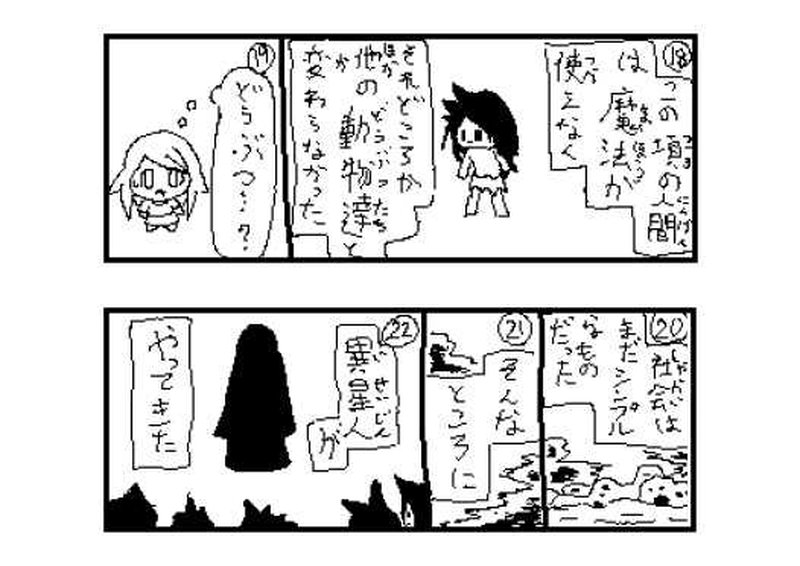 18
この頃の人間
は魔法が
使えなく
それどころか
他の動物達と
変わらなかった
19
どうぶつ…?
20
社会は
まだシンプル
なもの
だった
21
そんな
ところに
22
異星人
が
やってきた